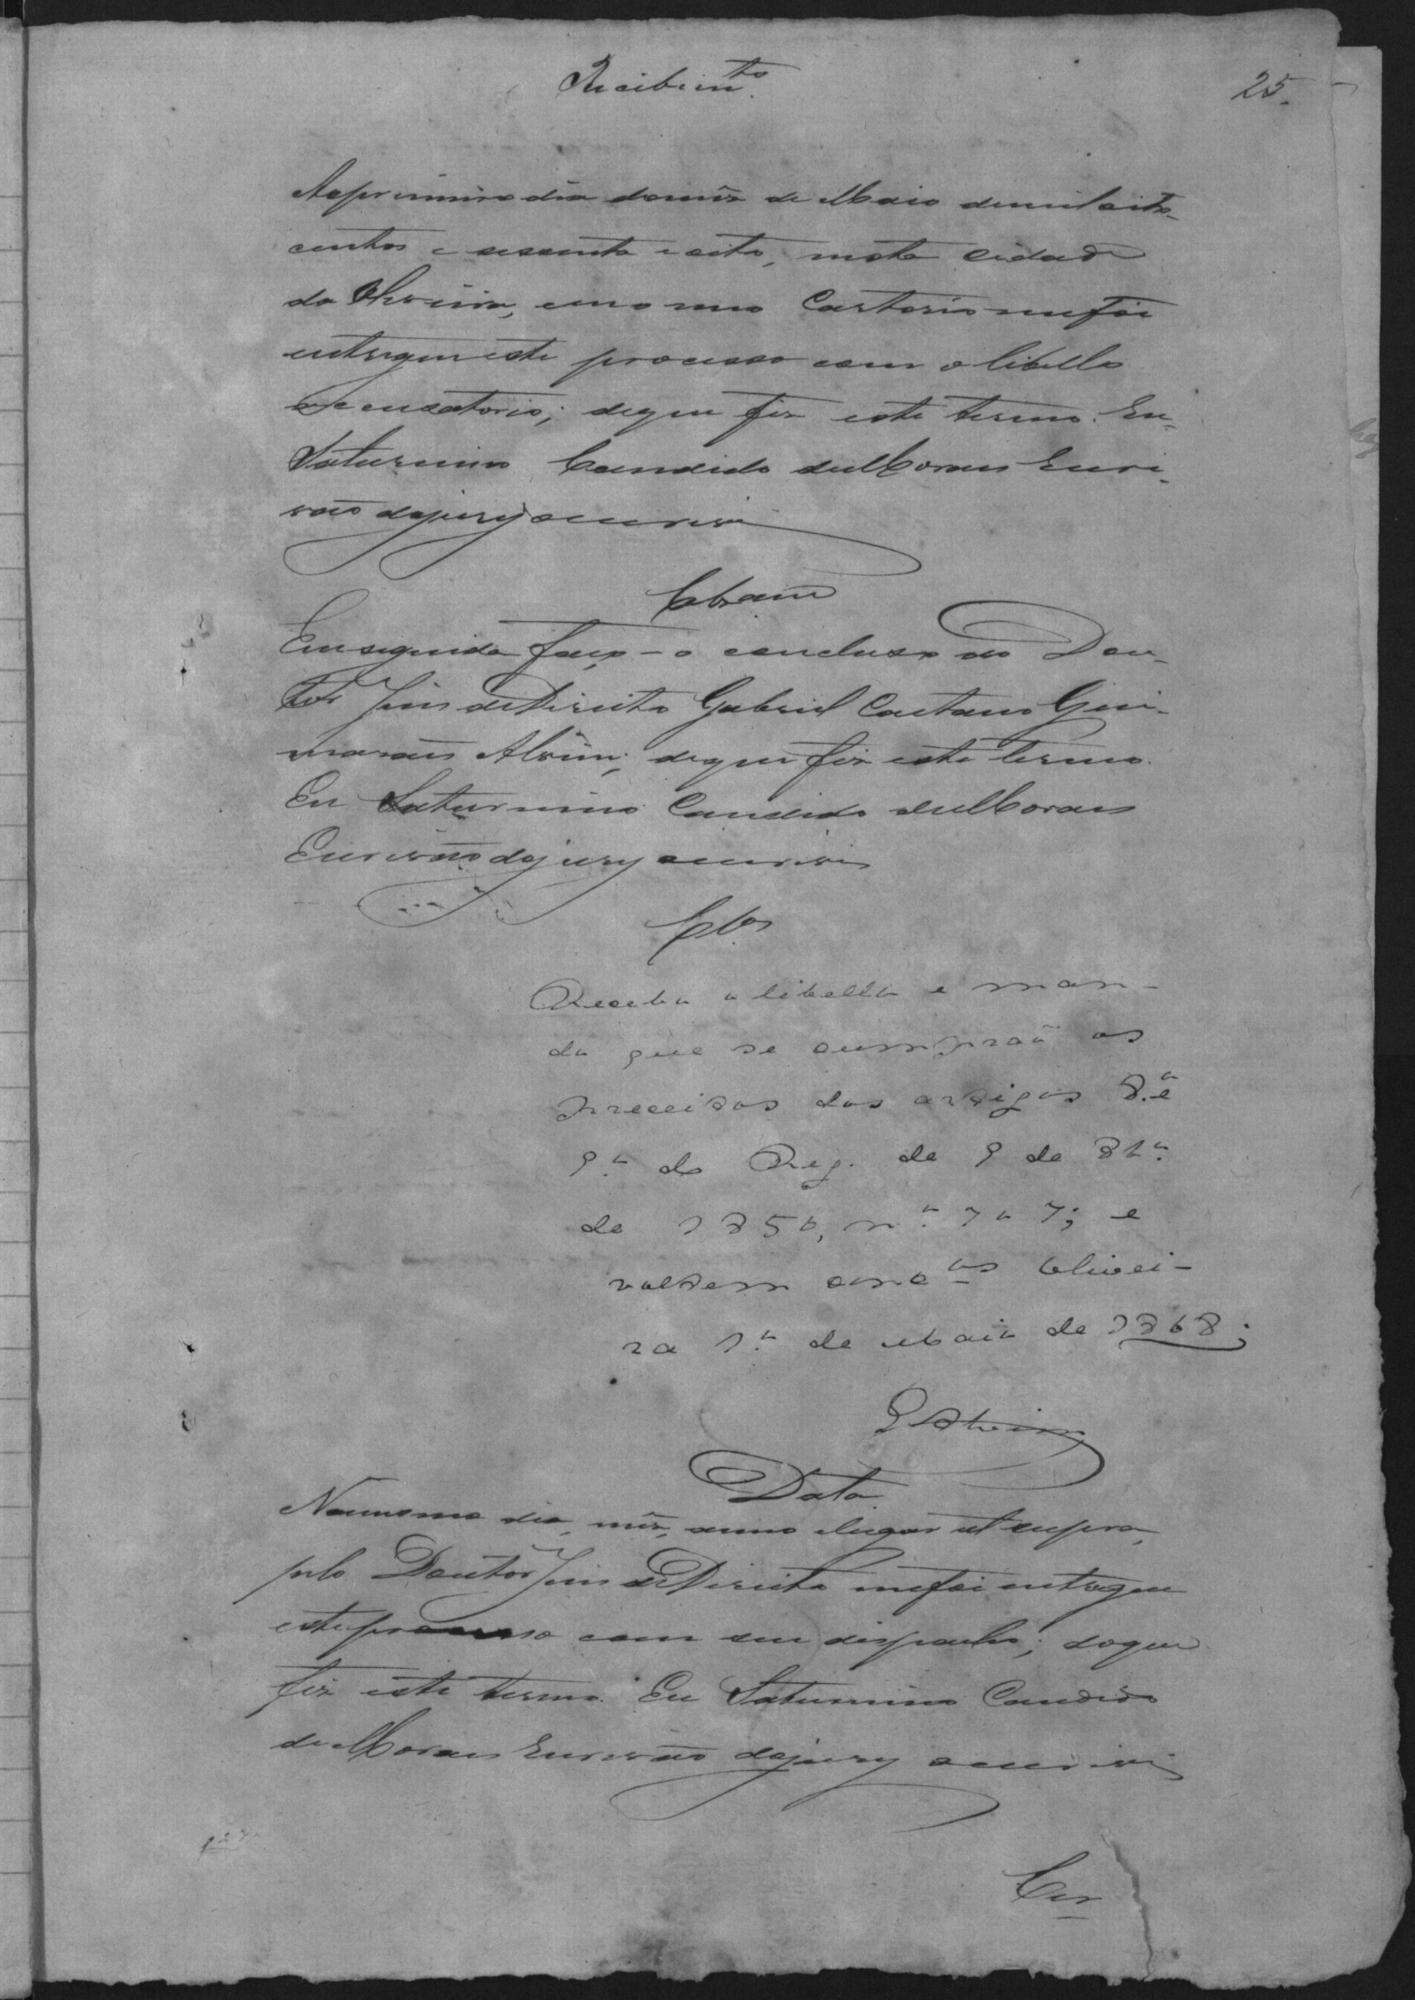 Recibim.to
25.
Ao primeiro dia domêz de Maio demil oito-
centos e sessenta e oito, nesta Cidade
da Oliveira, em o meo Cartorio me foi
entregue este processo com o libello
accusatorio; de que fiz este termo. Eu,
Saturnino Candido de Moraes Escri-
vão do jury o escrevi
Clsam
Em seguida faço-o concluso ao Dou-
tor Juis de Direito Gabriel Caetano Gui-
marães Alvim; de que fiz este termo.
Eu Saturnino Candido de Moraes
Escrivão do jury o escrevi
Cl.os
Recebo o libello e man-
do que se cumprão os
preceitos dos artigos 8.º e
9.º do Reg. de 9 de 8br.º
de 1850, n.º 707; e
voltem conc.os Olivei-
ra 1.º de Maio de 1868;
GAlvim
Data
No mesmo dia, mêz, anno e lugar ut supra,
pelo Doutor Juis de Direito me foi entregue
este processo com seu despacho; do que
fiz este termo. Eu Saturnino Candido
de Moraes Escrivão do jury o escrevi
Cer